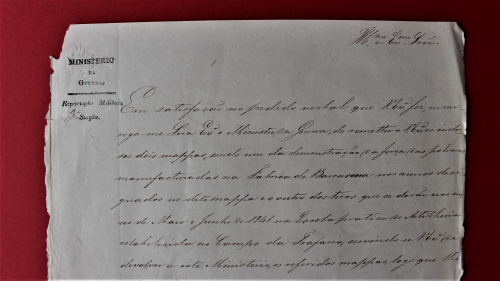 Ill.mo e Ex.mo Snr.
MINISTERIO
DA
GUERRA.
Repartição Militar
Secção.
Em satisfação ao pedido verbal que V Ex.ª fez, encar-
rega-me Sua Ex.ª o Ministro da Guerra, de remetter a V Ex.ª os inclu-
sos dois mappas, sendo um da demonstração da força das polvoras
manufacturadas na Fabrica de Barcarena nos annos desi-
gnados no dito mappa e o outro dos tiros que se derão nos me-
zes de Maio e Junho de 1841 na Escola pratica de Artilheria
estabelecida no Campo da Trafaria, servindo-se V Ex.ª de
devolver a este Ministerio, os referidos mappas, logo que lhe